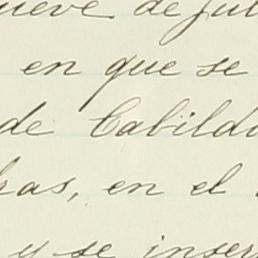 ueve de jul
en que se
de Cabild
ras, en el
y se inser